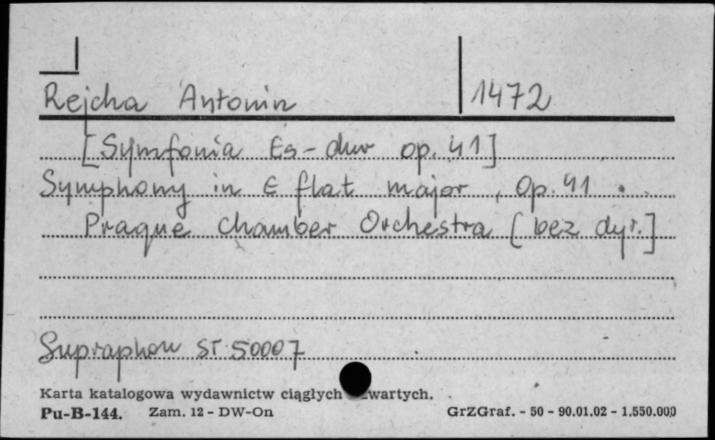 Rejcha Antonin 1472
[Symfonia Es-dur op. 41]
Symphony in E flat major, Op. 41.
Prague Chamber Orchestra [bez dyr.]
Supraphon ST 50007
Karta katalogowa wydawnictw ciągłych zwartych.
Pu-B-144. Zam. 12 - DW-On GrZGraf. - 50 - 90.01.02 - 1.550.000